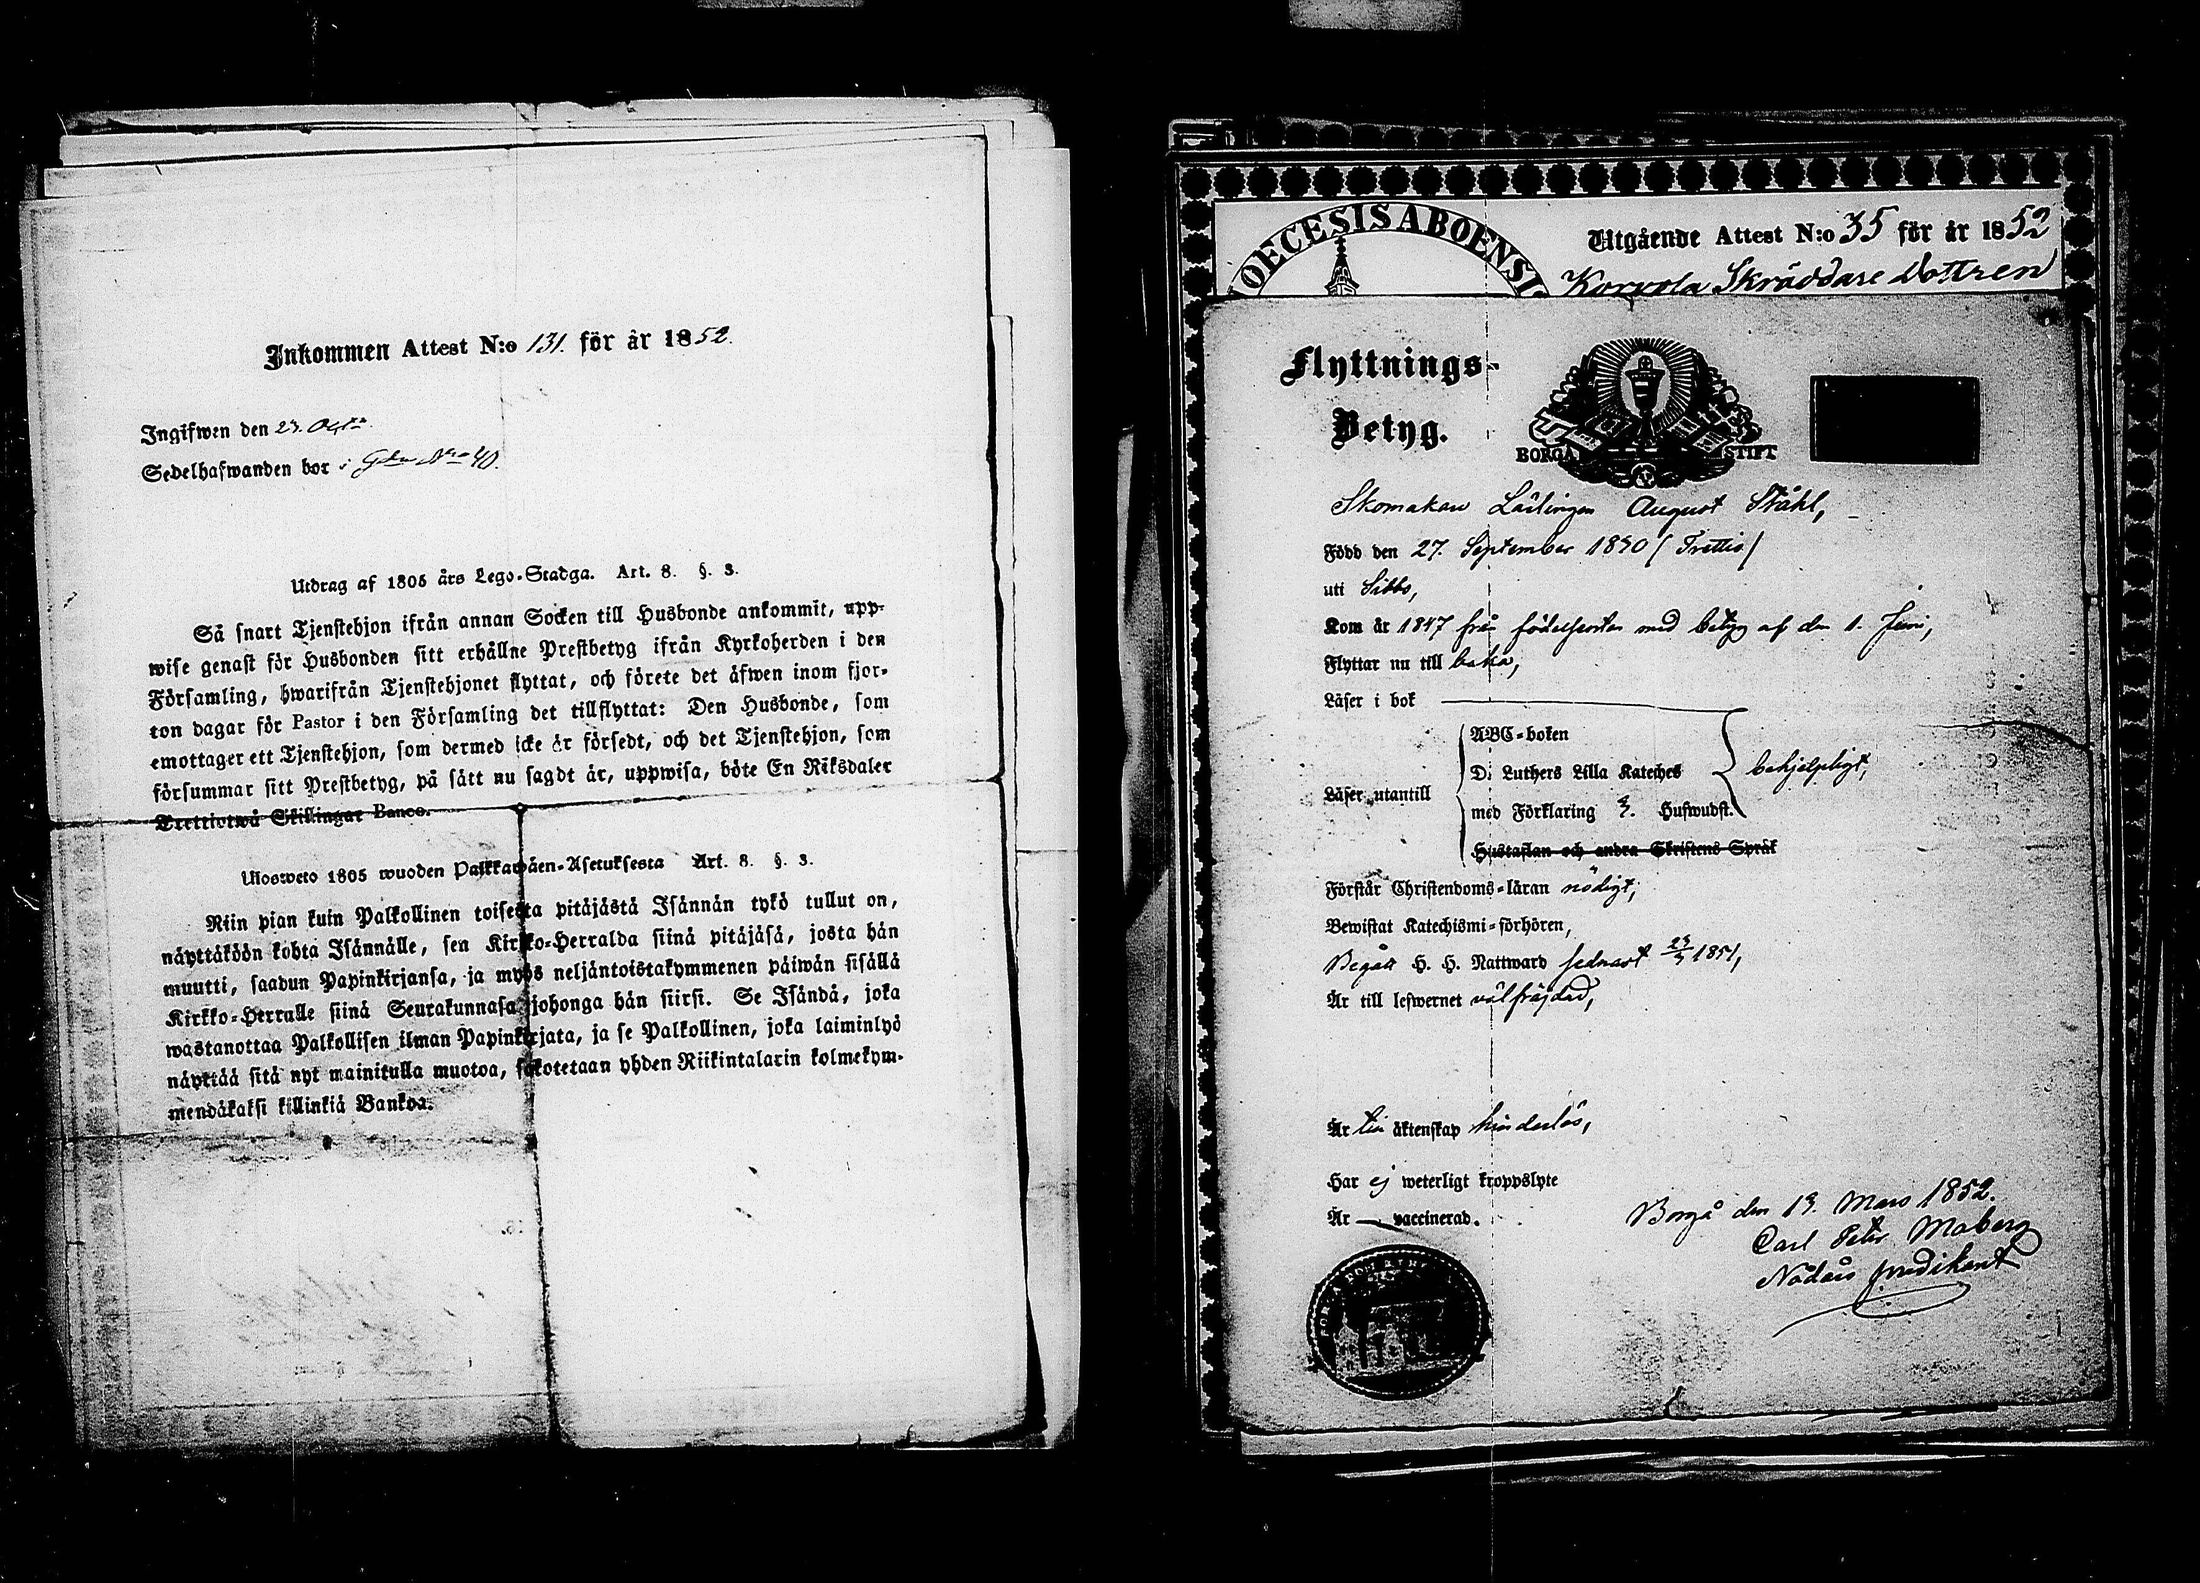 Inkommen Attest N:o 131. för år 1852.
Ingifwen den 23. Octb.
Sedelhafwanden bor i Gdn No 40.
Utdrag af 1805 års Lego-Stadga. Art. 8. §. 3.
Så snart Tjenstehjon ifrån annan Socken till Husbonde ankommit, upp-
wise genast för Husbonden sitt erhållne Prestbetyg ifrån Kyrkoherden i den
Församling, hwarifrån Tjenstehjonet flyttat, och förete det äfwen inom fjor-
ton dagar för Pastor i den Församling det tillflyttat: Den Husbonde, som
emottager ett Tjenstehjon, som dermed icke är försedt, och det Tjenstehjon, som
försummar sitt Prestbetyg, på sätt nu sagdt är, uppwisa, böte En Riksdaler
Trettiotwå Skillingar Banco.
Ulosweto 1805 wuoden Palkkawäen-Asetuksesta Art. 8. §. 3.
Niin pian kuin Palkollinen toisesta pitäjästä Isännän tykö tullut on,
näyttäköön kohta Isännälle, sen Kirkko-Herralda siinä pitäjäsä, josta hän
muutti, saadun Papinkirjansa, ja myös neljäntoistakymmenen päiwän sisällä
Kirkko-Herralle siinä Seurakunnasa johonga hän siirsi. Se Isändä, joka
wastanottaa Palkollisen ilman Papinkirjata, ja se Palkollinen, joka laiminlyö
näyttää sitä nyt mainitulla muotoa, sakotetaan yhden Riikintalarin kolmekym-
mendäkaksi killinkiä Bankoa.
DIOECESIS ABOENSIS
Utgående Attest N:o 35 för år 1852
Korvola Skräddare Dottren
Flyttnings-
Betyg.
BORGÅ STIFT
Skomakare Lärlingen August Ståhl,
Född den 27. September 1830 / Trettio /
uti Sibbo,
Kom år 1847 från födelseorten med betyg af den 1. Juni,
Flyttar nu till baka,
Läser i bok
Läser utantill
ABC-boken
D. Luthers Lilla Kateches
med Förklaring 3. Hufwudst.
behjelpligt,
Hustaflan och andra Skriftens Språk
Förstår Christendoms-läran nödigt,
Bewistat Katechismi-förhören,
Begått H. H. Nattward sednast 23/3 1851,
Är till lefwernet välfräjdad,
Är till äktenskap hinderlös,
Har ej weterligt kroppslyte
Är vaccinerad.
Borgå den 13. Mars 1852.
Carl Peter Moberg
Nådårs predikant